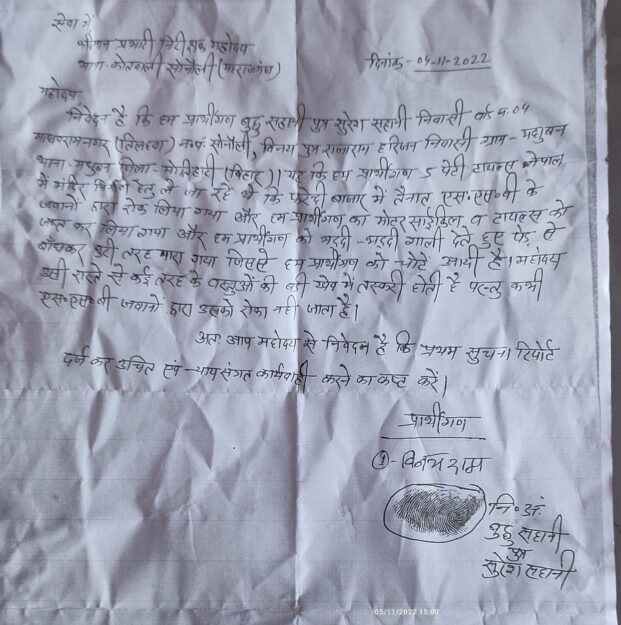 सेवा में
श्रीमान प्रभारी निरीक्षक महोदय
थाना-कोतवाली सोनौली (महाराजगंज)
दिनांक- 04-11-2022
महोदय
निवेदन है कि हम प्रार्थीगण बुद्धु सहानी पुत्र सुरेश सहानी निवासी वार्ड नं 04
नगर (तिलहवा) नपं. सोनौली, विनय पुत्र राजाराम हरिजन निवासी ग्राम- मधुबन
थाना- मधुबन जिला- मोतिहारी (बिहार)। यह कि हम प्रार्थीगण 5 पेटी टायल्स नेपाल
में मंदिर हेतु ले जा रहे थे कि बाजार में तैनात एस.एस.बी के
जवानों द्वारा रोक लिया गया और हम प्रार्थीगण का मोटर साईकिल व टायल्स को
जब्त कर लिया गया और हम प्रार्थीगण को भद्दी-भद्दी गाली देते हुए पेड़ से
बाँधकर बुरी तरह मारा गया जिससे हम प्रार्थीगण को चोटें आयी है। महोदय
इसी रास्ते से कई तरह के वस्तुओं की बड़ी खेप में तस्करी होती है परन्तु कभी
एस.एस.बी जवानों द्वारा उसको रोका नही जाता है।
अतः आप महोदय से निवेदन है कि प्रथम सुचना रिपोर्ट
दर्ज कर उचित एंव न्यायसंगत कार्यवाही करने का कष्ट करें।
प्रार्थीगण
①- विनय राम
नि. अं.
बुद्धु सहानी
पुत्र
सुरेश सहानी
05/11/2022 15:09